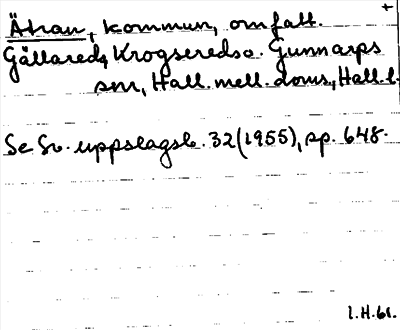 +
Ätran, kommun, omfatt.
Gällareds, Krogsereds o. Gunnarps
snr, Hall. mell. doms., Hall. l.
Se Sv. uppslagsb. 32 (1955), sp. 648.
I.H. 61.